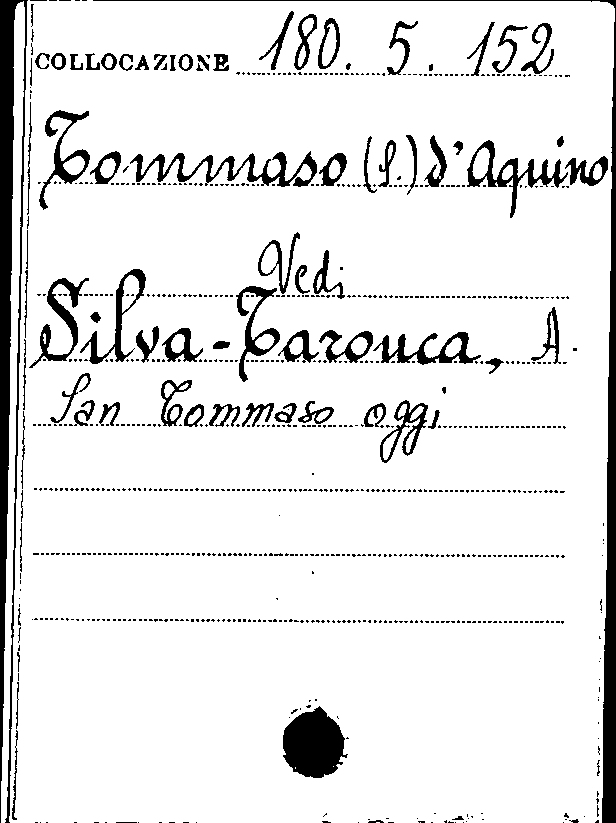 COLLOCAZIONE 180. 5. 152
Tommaso (S.) d'Aquino
Vedi
Silva-Tarouca, A.
San Tommaso oggi